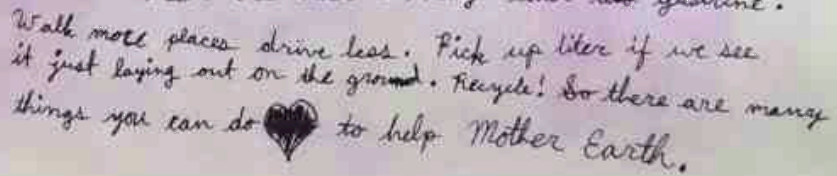 gasoline.
Walk more places drive less. Pick up liter if we see
it just laying out on the ground. Recycle! So there are many
things you can do to help Mother Earth.